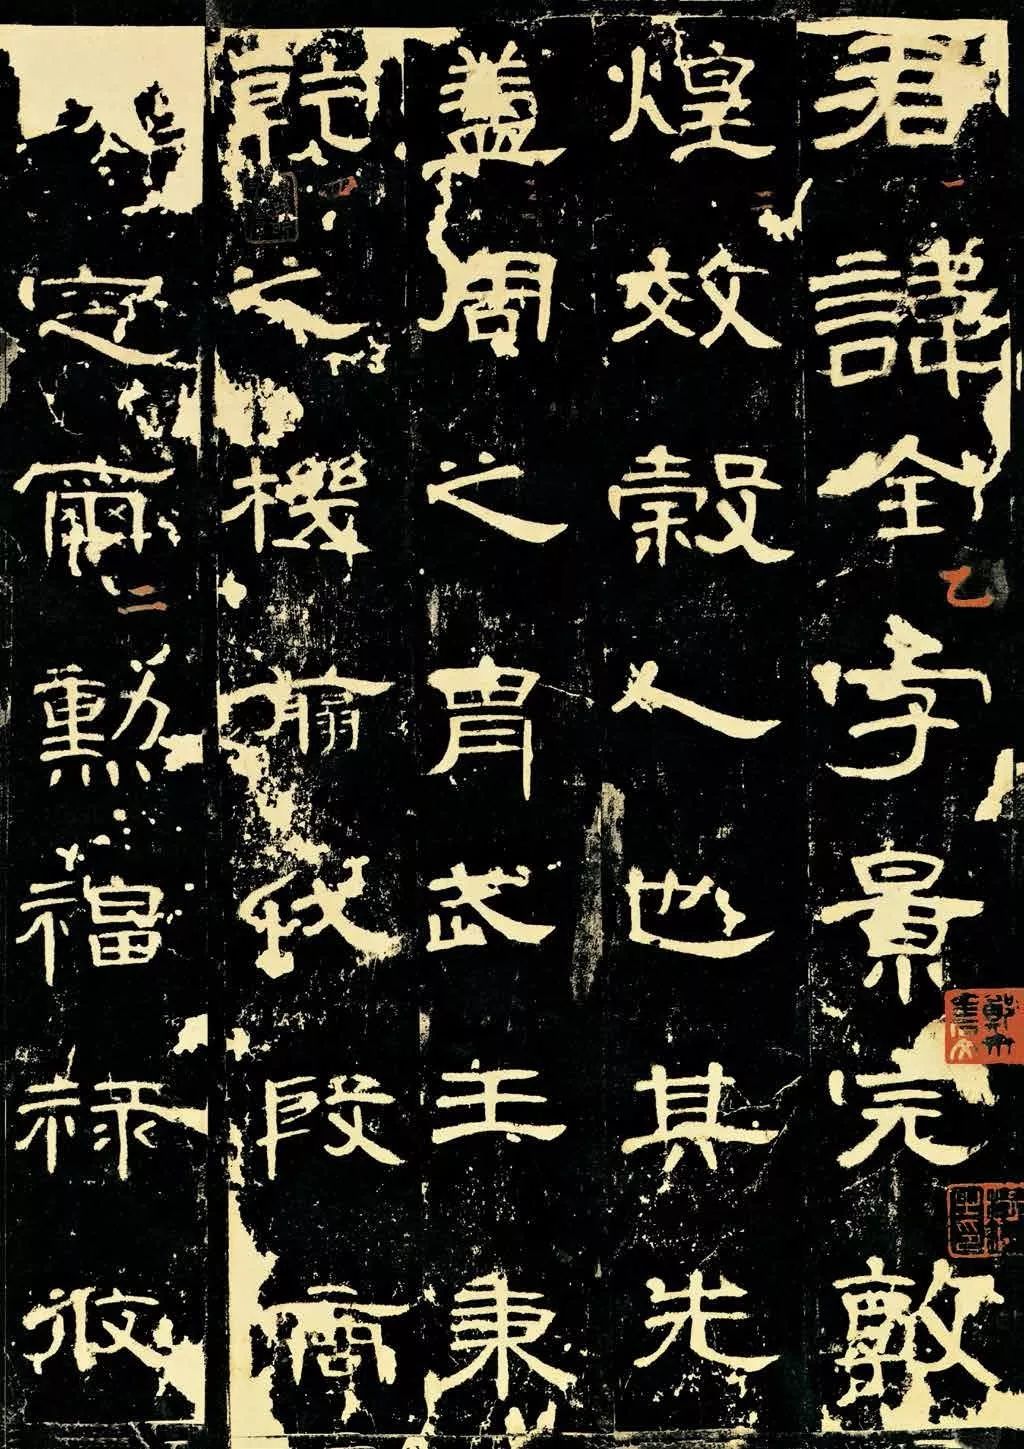 君諱全字景完敦
煌效穀人也其先
蓋周之胄武王秉
乾之機翦伐殷商
定爾勳福祿攸